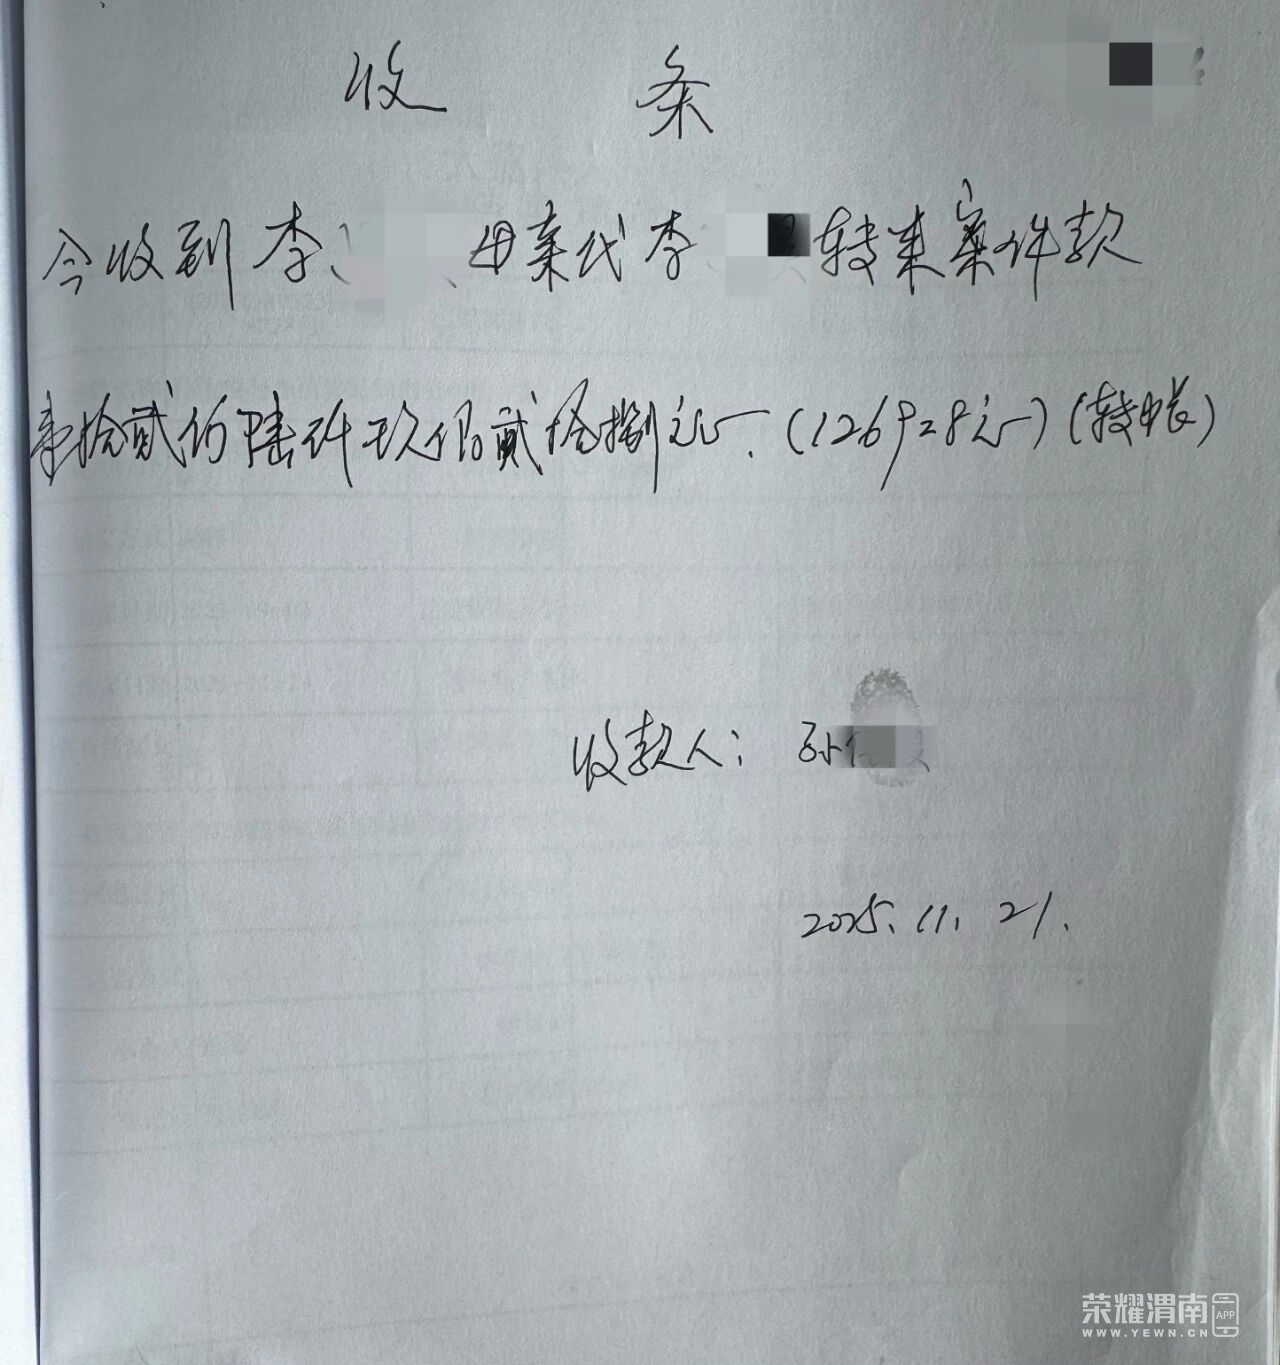 收 条
今收到李 母亲代李 转来案件款
壹拾贰万陆仟玖佰贰拾捌元 . (126928元) (转账)
收款人: 孙
2025. 11. 21.
荣耀渭南 APP
WWW.YEWN.CN